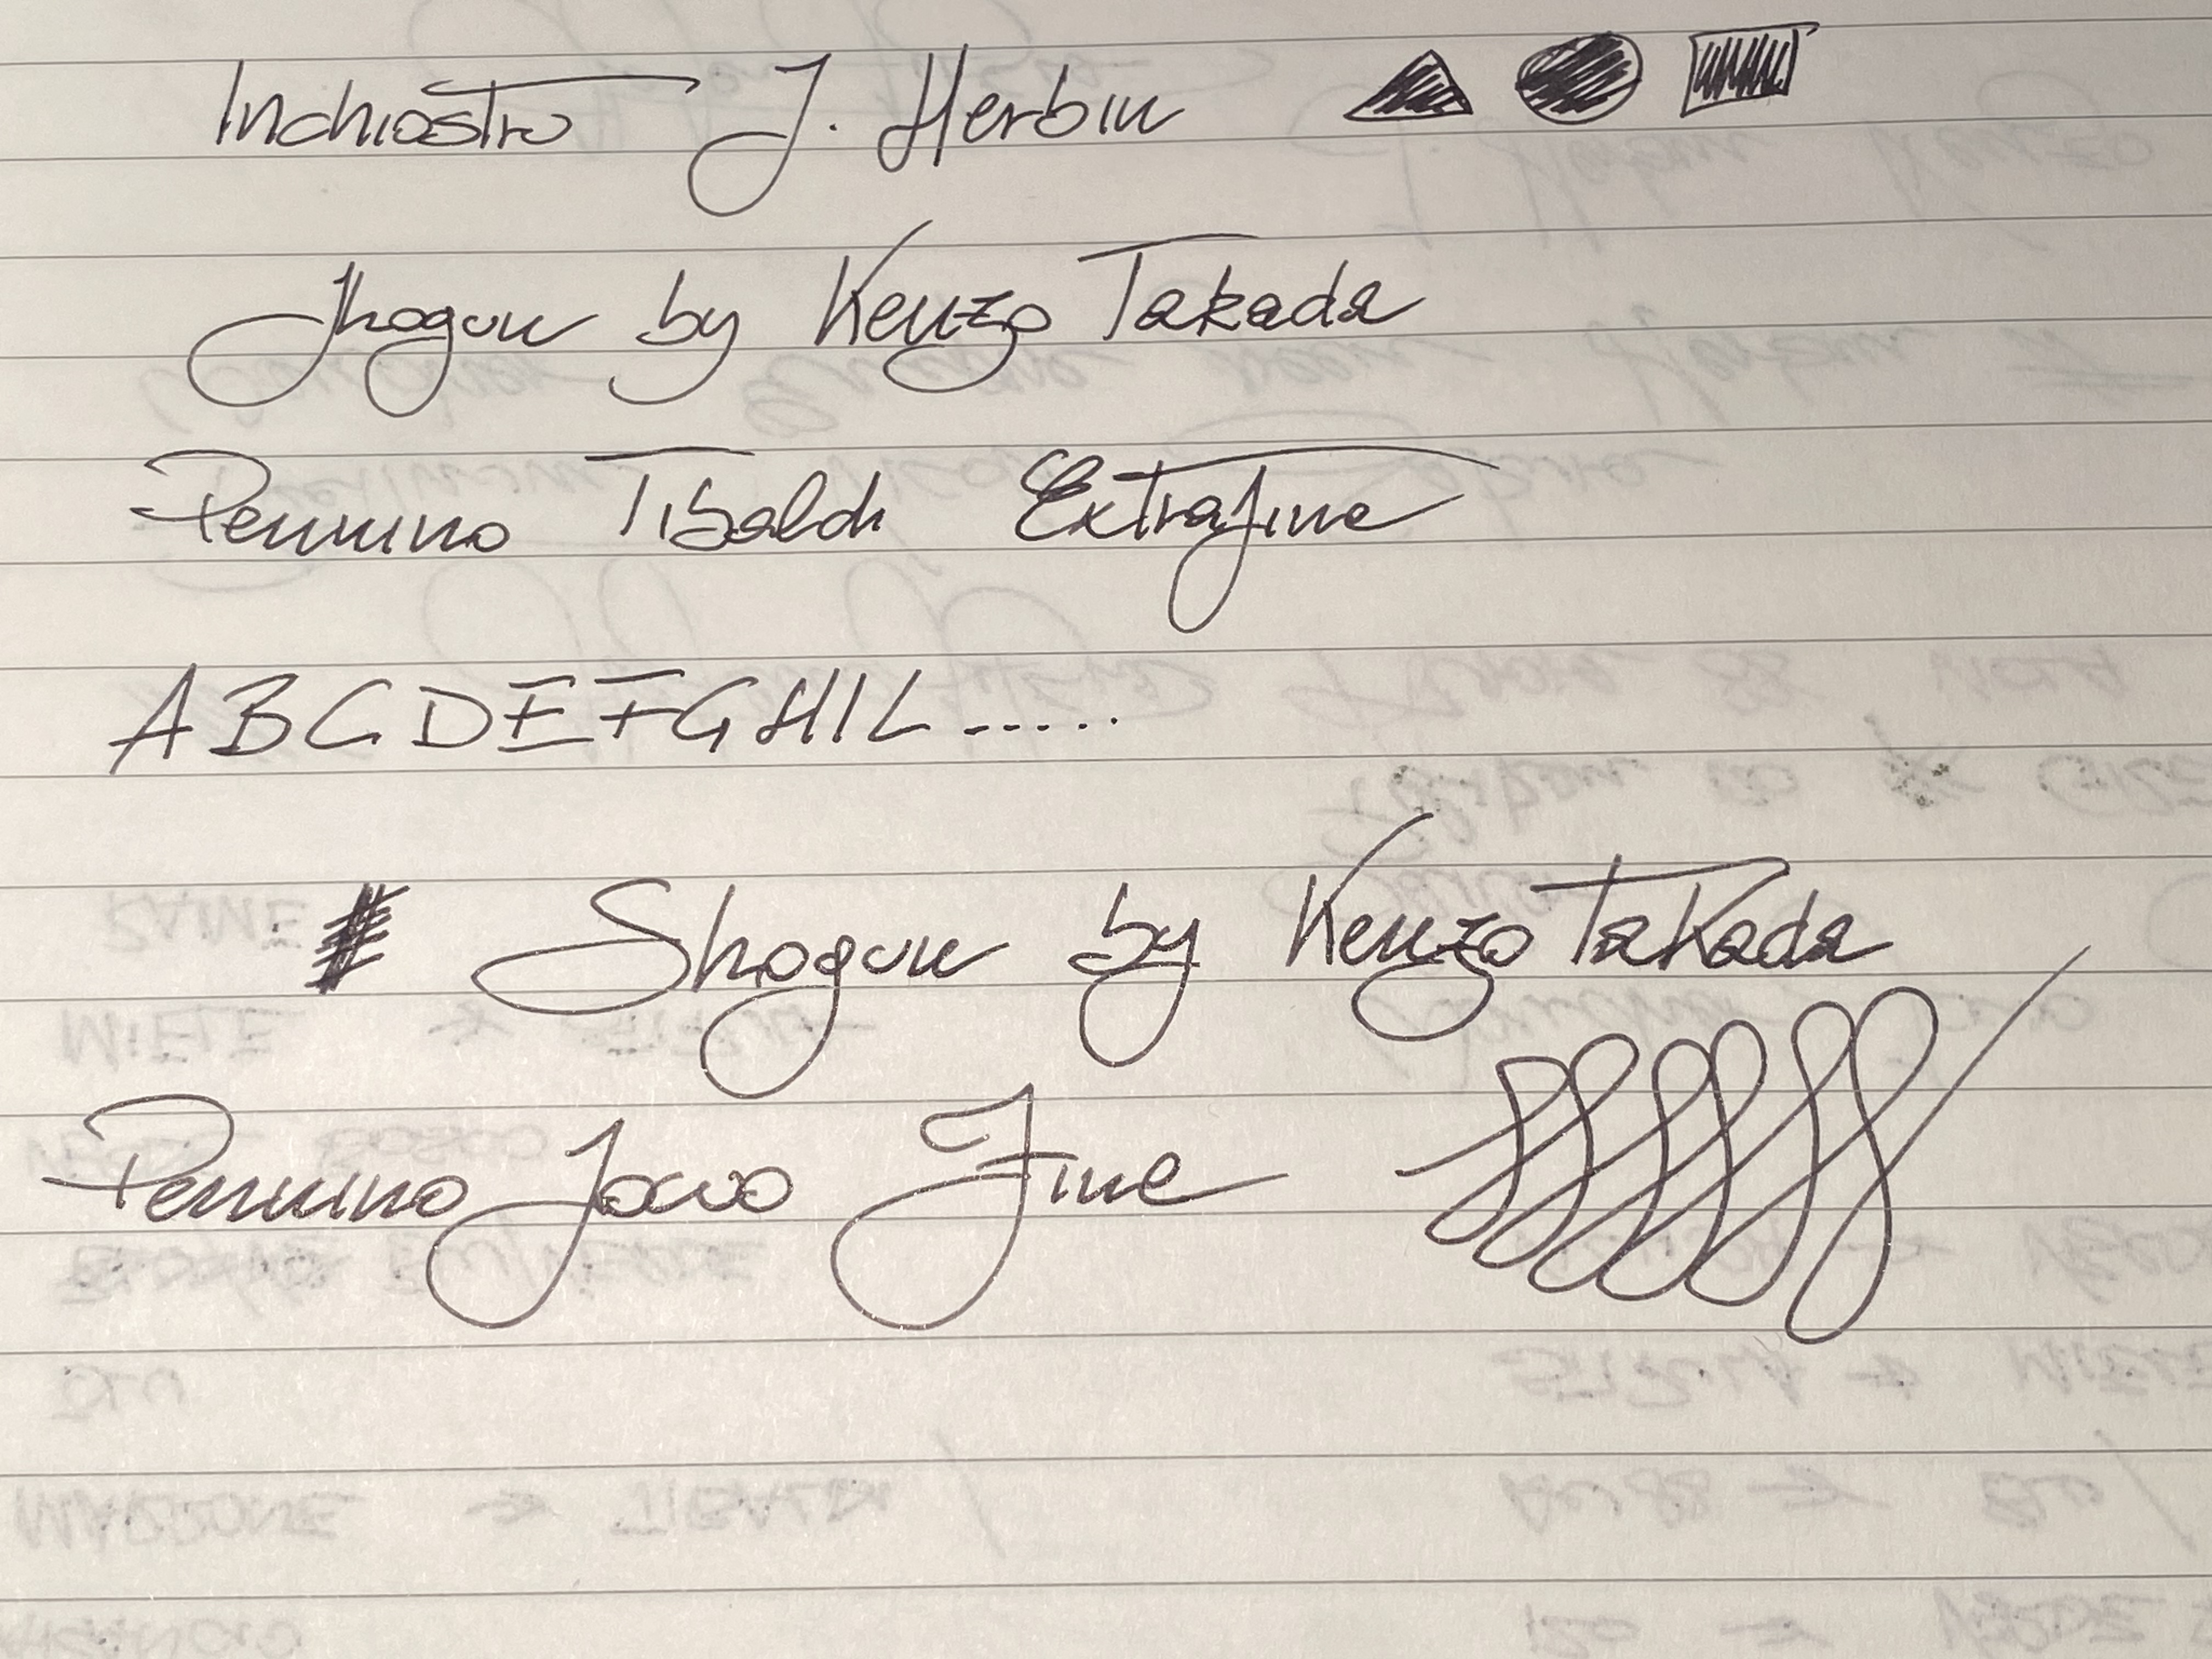 Inchiostro J. Herbin
Shogun by Kenzo Takada
Pennino Tibaldi Extrafine
ABCDEFGHIL.....
Shogun by Kenzo Takada
Pennino Jowo Fine